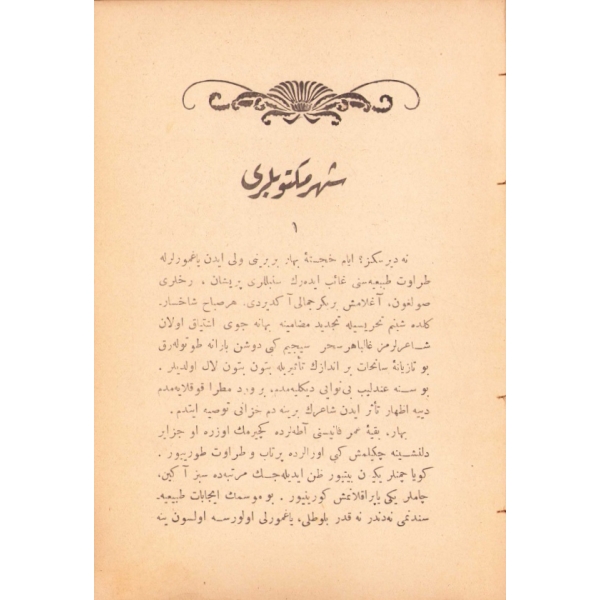 شهر مكتوبلری
١
نه دیرسكز؟ ایام خجستهٔ بهار بربرینی ولی ایدن یاغمورلرله
طراوت طبیعیه‌سنی غائب ایده‌رك سنبللری پریشان ، رخلری
صولغون، آغلامش بر بكر جمالی آ كدیردی. هر صباح شاخسار
كلده شبنم تحریسیله تجدید مضامینه بهانه جوی اشتیاق اولان
شاعرلرمز غالبا هر سحر سیجیم كبی دوشن بارانه طوتوله‌رق
بو تازیانهٔ سانحات بر اندازك تأثیریله بتون بتون لال اولدیلر .
بو سنه عندلیب بی‌نوایی دیكلیه‌مدم، بر ورد مطرا قوقلایه‌مدم
دییه اظهار تأثر ایدن شاعرك برینه دم خزانی توصیه ایتدم .
بهار، بقیهٔ عمر فانیسنی آطه‌لرده كچیرمك اوزره او جزایر
دلنشینه چكیلمش كبی اورالرده پرتاب و طراوت طورییور .
كویا چمنلر یكیدن بیتیور ظن ایدیله‌جك مرتبه‌ده سبز آ كین.
چاملر یكی یاپراقلانمش كورینیور . بو موسمك ایجابات طبیعیه‌
سندنمی نه‌دندر نه قدر بلوطلی، یاغمورلی اولورسه اولسون ینه